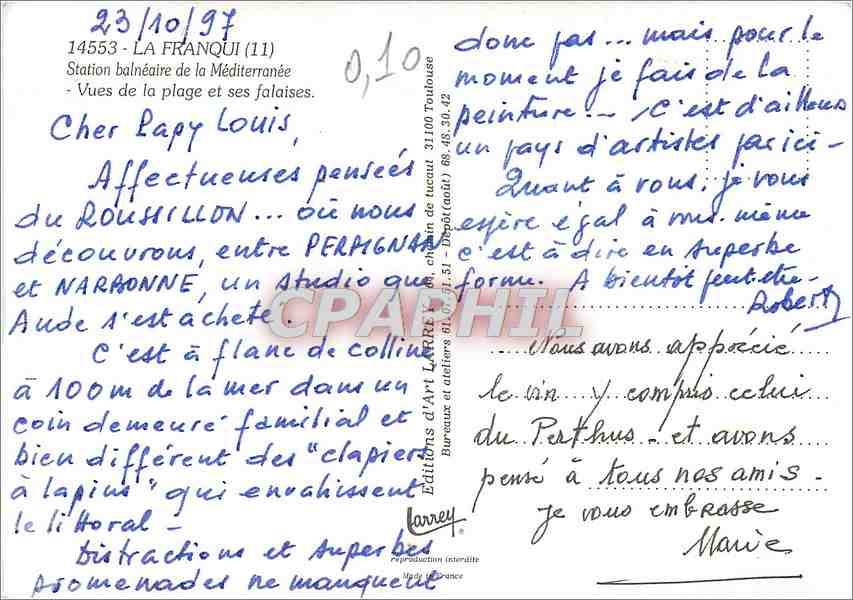 23/10/97
14553 - LA FRANQUI (11)
Station balnéaire de la Méditerranée
- Vues de la plage et ses falaises.
0,10
Cher Papy Louis,
Affectueuses pensées
du ROUSSILLON... où nous
découvrons, entre PERPIGNAN
et NARBONNE, un studio que
Aude s'est acheté.
C'est à flanc de colline
à 100m de la mer dans un
coin demeuré familial et
bien différent des "clapiers
à lapins" qui envahissent
le littoral -
Distractions et superbes
promenades ne manquent
donc pas... mais pour le
moment je fais de la
peinture. - C'est d'ailleurs
un pays d'artistes par ici -
Quant à vous, je vous
espère égal à vous-même
c'est à dire en superbe
forme. A bientôt peut-être -
Robert
Nous avons apprécié
le vin y compris celui
du Perthus - et avons
pensé à tous nos amis -
Je vous embrasse
Marie
Editions d'Art LARREY chemin de tucaut 31100 Toulouse
Bureaux et ateliers 61.07.51.51 - Dépôt (août) 68.48.30.42
Larrey
reproduction interdite
Made in France
CPAPHIL